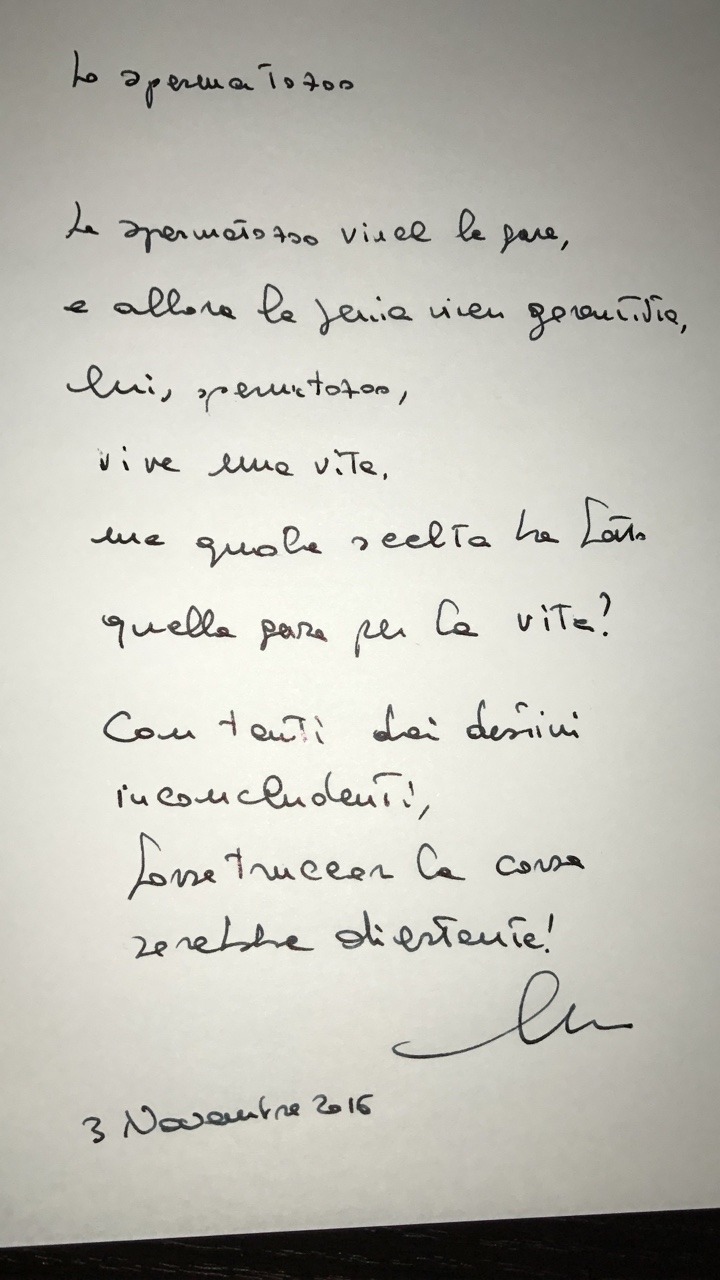 Lo spermatozoo
Lo spermatozoo vince la gara,
e allora la genia vien garantita,
lui, spermatozoo,
vive una vita,
ma quale scelta ha fatto
quella gara per la vita?
Con tanti dai destini
inconcludenti,
forse truccar la corsa
sarebbe
3 Novembre 2016